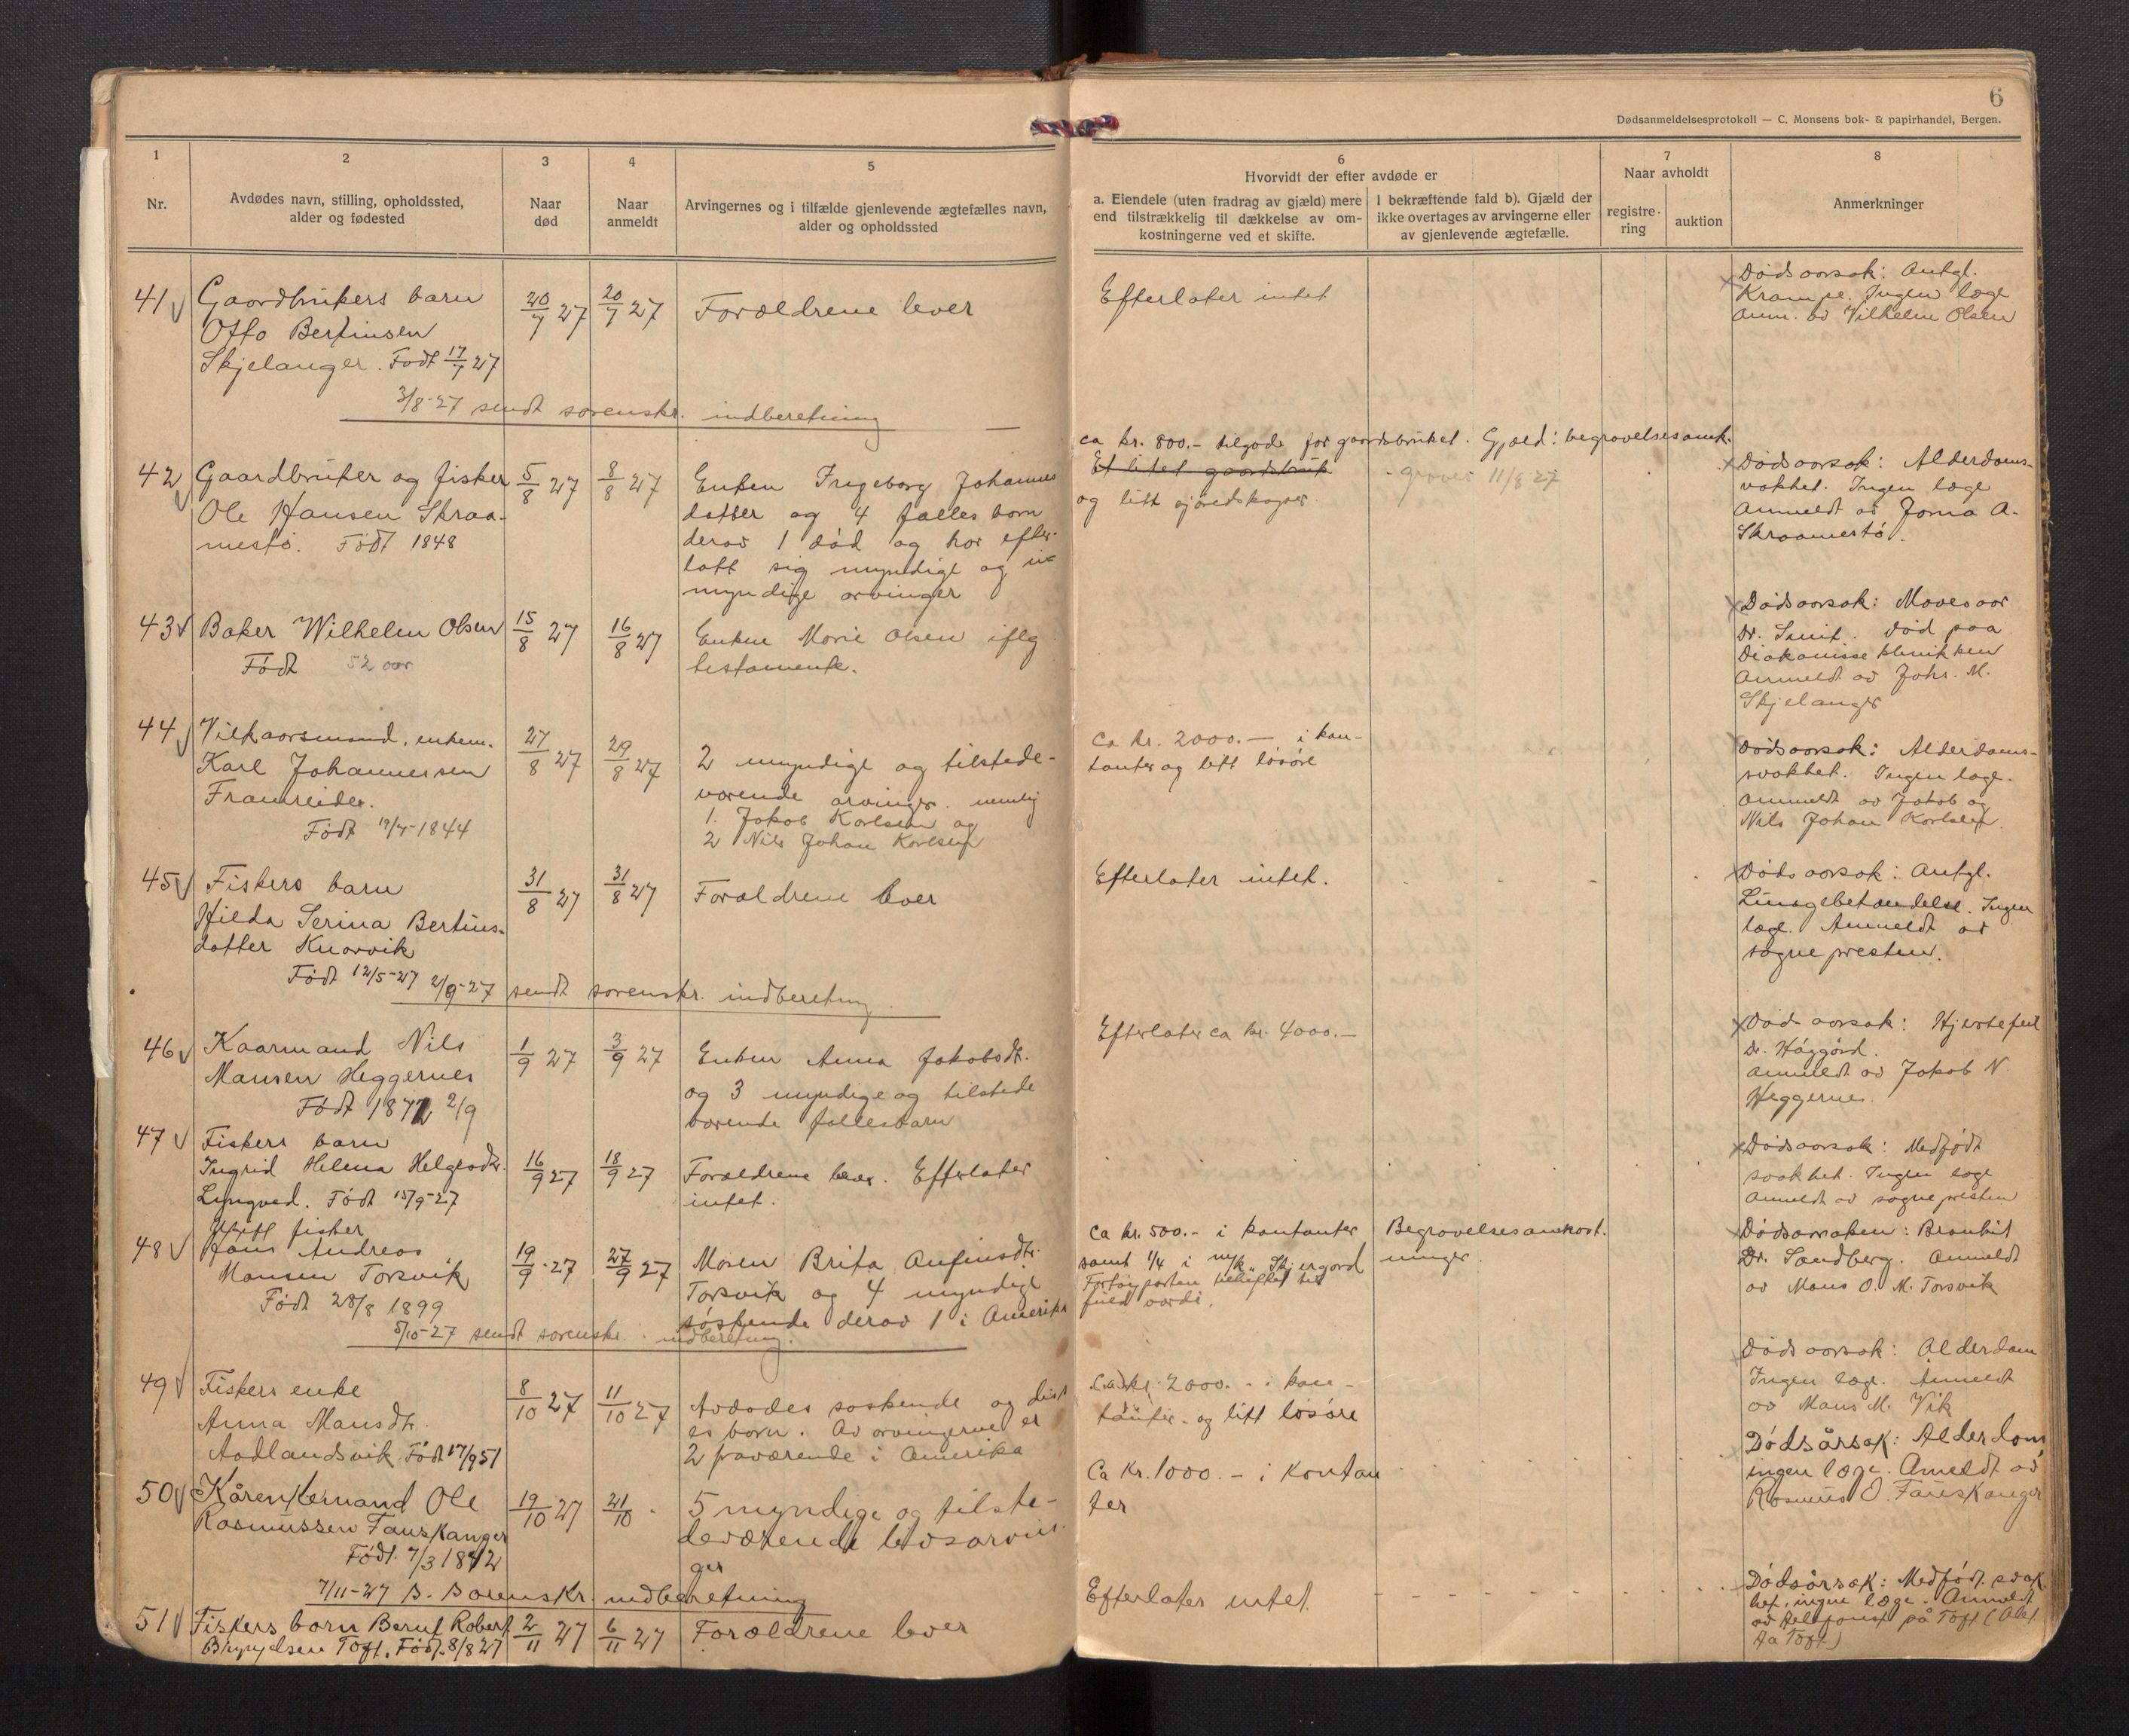 6
Dødsanmeldelsesprotokoll — C. Monsens bok- & papirhandel, Bergen.
1
Nr.
2
Avdødes navn, stilling, opholdssted,
alder og fødested
3
Naar
død
4
Naar
anmeldt
5
Arvingernes og i tilfælde gjenlevende ægtefælles navn,
alder og opholdssted
6
Hvorvidt der efter avdøde er
a. Eiendele (uten fradrag av gjæld) mere
end tilstrækkelig til dækkelse av om-
kostningerne ved et skifte.
I bekræftende fald b). Gjæld der
ikke overtages av arvingerne eller
av gjenlevende ægtefælle.
7
Naar avholdt
registre-
ring
auktion
8
Anmerkninger
41
Gaardbrukers barn
Otto Bertinsen
Skjelanger. Født 17/7 27
20/7 27
20/7 27
Forældrene lever
Efterlater intet
Dødsaarsak: Antgl.
Krampe. Ingen læge
Anm. av Vilhelm Olsen
3/8-27 sendt sorenskr. indberetning
42
Gaardbruker og fisker
Ole Hansen Skraa-
mestø. Født 1848
5/8 27
8/8 27
Enken Ingeborg Johannes
datter og 4 fælles born
derav 1 død og har efter-
latt sig myndige og u-
myndige arvinger
ca kr. 800.- tilgode for gaardsbruket. Gjæld: begravelsesomk.
Et litet gaardsbruk
og litt
11/8 27
Dødsaarsak: Alderdoms-
svakhet. Ingen læge
Anmeldt av Jorna A.
Skraamestø.
43
Baker Wilhelm Olsen
Født 52 aar
15/8 27
16/8 27
Enken Marie Olsen iflg
testamente.
Dødsaarsak: Mavesaar
Dr. Smit. Død paa
Diakonisse klinikken
Anmeldt av Johs. M.
Skjelanger
44
Vilkaarsmand, enkem.
Karl Johannessen
Framreide.
Født 19/4-1844
27/8 27
29/8 27
2 myndige og tilstede-
værende arvinger. nemlig
1. Jakob Karlsen og
2 Nils Johan Karlsen
Ca kr. 2000.— i kon-
tanter og litt løsøre
Dødsaarsak: Alderdoms-
svakhet. Ingen læge.
Anmeldt av Jakob og
Nils Johan Karlsen.
45
Fiskers barn
Hilda Serina Bertins-
datter Knarvik
Født 12/5-27
31/8 27
31/8 27
Forældrene lever
Efterlater intet.
Dødsaarsak: Antgl.
Lungebetændelse. Ingen
læge. Anmeldt av
sognepresten.
2/9-27 sendt sorenskr. indberetning
46
Kaarmand Nils
Mansen Heggernes
Født 1872 2/9
1/9 27
3/9 27
Enken Anna Jakobsdt.
og 3 myndige og tilstede
værende fællesbarn
Efterlater ca kr. 4000.—
Dødsaarsak: Hjertefeil
Dr. Høggård.
Anmeldt av Jakob N.
Heggernes.
47
Fiskers barn
Ingrid Helena Helgesdtr.
Lyngved. Født 15/9-27
16/9 27
18/9 27
Forældrene lever. Efterlater
intet.
Dødsaarsak: Medfødt
svakhet. Ingen læge
Anmeldt av sognepresten
48
Ugift fisker
Hans Andreas
Mansen Torsvik
Født 28/8 1899
19/9 27
27/9 27
Moren Brita Anfinsdtr.
Torsvik og 4 myndige
søskende derav 1 i Amerika
Ca kr. 500.- i kontanter
samt 1/4 i m/k „Skjergard
fuld værdi.
Begravelsesomkost.
ninger.
Dødsaarsaken: Bronkit
Dr. Sandberg. Anmeldt
av Mans O. M. Torsvik
5/10-27 sendt sorenskr. indberetning.
49
Fiskers enke
Anna Mansdtr.
Aadlandsvik. Født 17/9 51
8/10 27
11/10 27
Avdødes søskende og diss
es born. Av arvingerne er
2 fraværende i Amerika
Ca kr. 2000. - i kon-
tanter og litt løsøre
Dødsaarsak: Alderdom
Ingen læge. Anmeldt
av Mans M. Vik
50
Kårenkemand Ole
Rasmussen Fauskanger
Født. 7/3 1842
19/10 27
21/10
5 myndige og tilste-
deværende livsarvin-
ger
Ca kr. 1000.- i kontan
ter
Dødsårsak: Alderdom
ingen læge. Anmeldt av
Rasmus O. Fauskanger
7/11-27 s. Sorenskr. indberetning
51
Fiskers born Bernt Robert
Brynjelsen Toft. Født. 8/8 27
2/11 27
6/11 27
Forældrene lever
Efterlater intet.
Dødsårsak: Medfødt svak
het, ingen læge. Anmeldt
av telefonist på Toft
Toft)